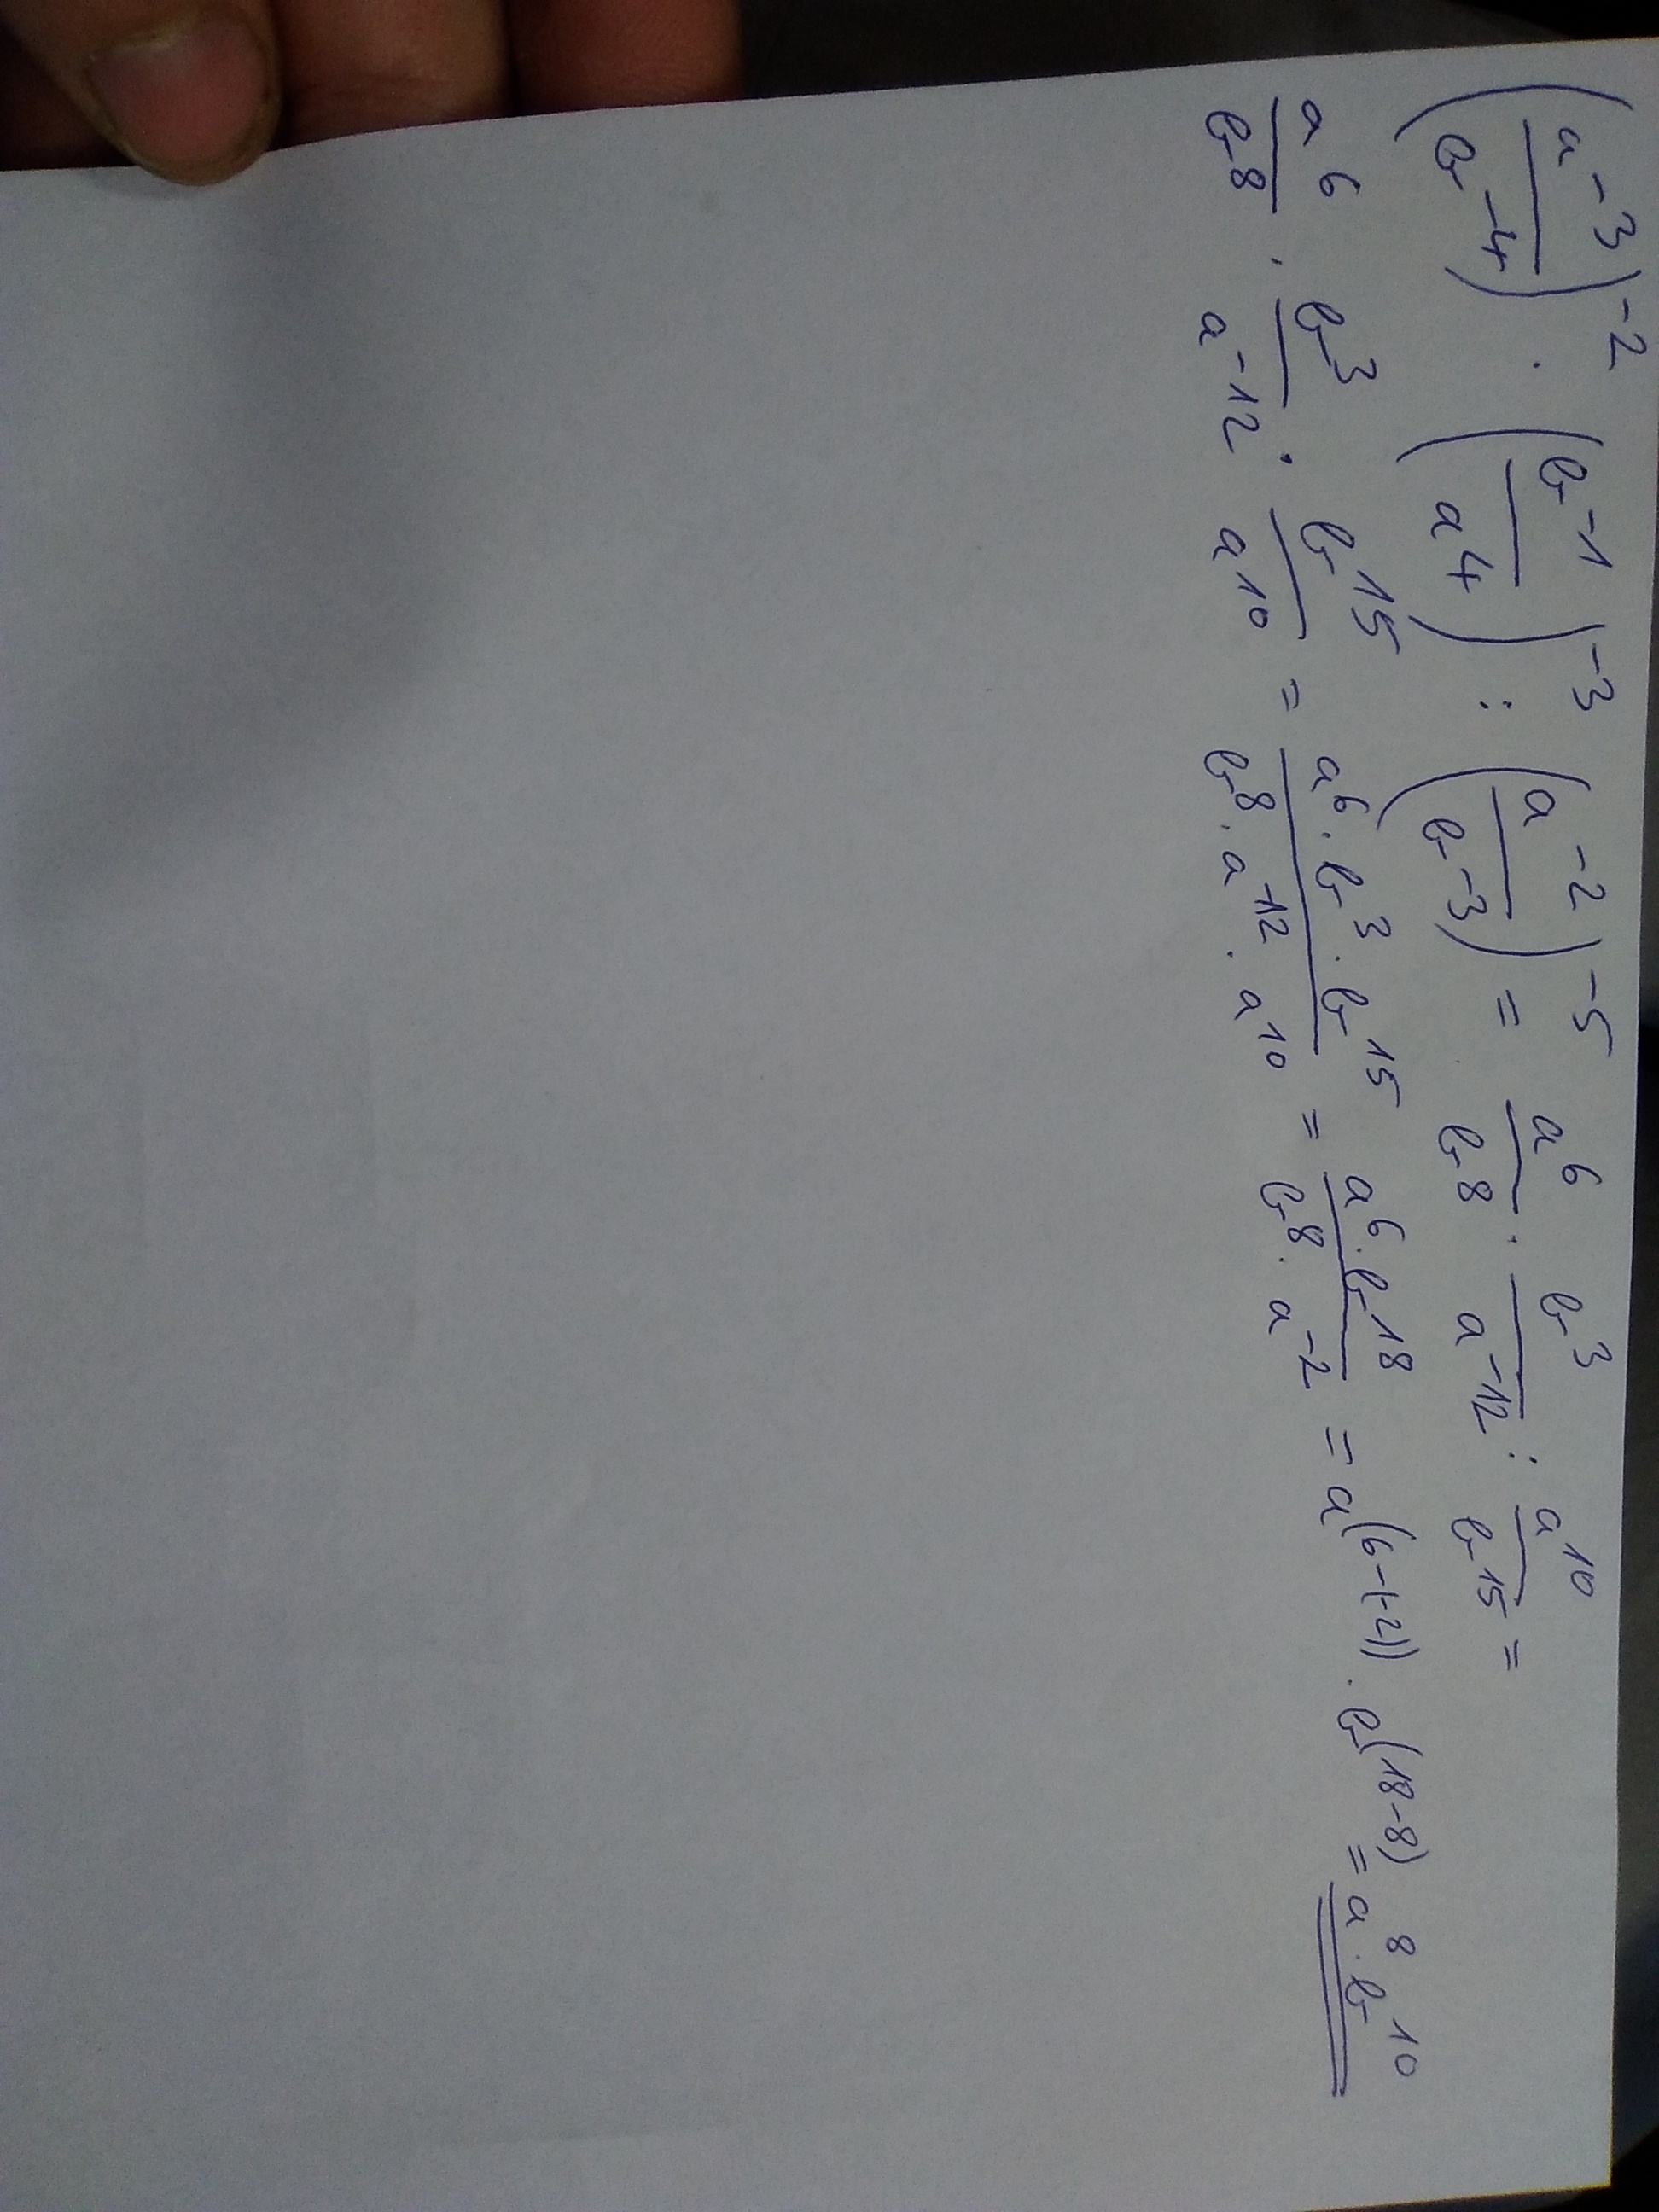 (a^-3 / b^-4)^-2 · (b^-1 / a^4)^-3 : (a^-2 / b^-3)^-5 = a^6 / b^8 · b^3 / a^-12 : a^10 / b^15 =
a^6 / b^8 · b^3 / a^-12 · b^15 / a^10 = a^6 · b^3 · b^15 / b^8 · a^-12 · a^10 = a^6 · b^18 / b^8 · a^-2 = a^(6-(-2)) · b^(18-8) = a^8 · b^10